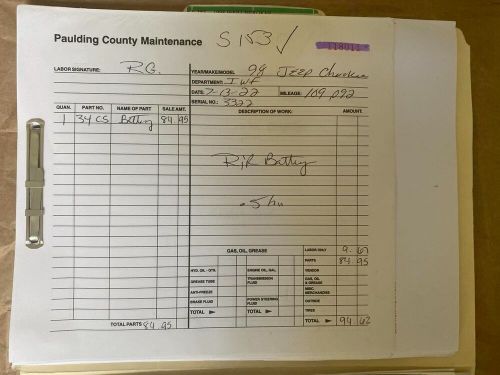 Paulding County Maintenance S153 ✓ 118011
LABOR SIGNATURE: R.G. YEAR/MAKE/MODEL 98 JEEP Cherokee
DEPARTMENT: IWF
DATE: 7-13-22 MILEAGE: 109,092
SERIAL NO.: 3322
QUAN. PART NO. NAME OF PART SALE AMT. DESCRIPTION OF WORK: AMOUNT
1 34CS Battery 84.95
R/R Battery
.5 hr
GAS, OIL, GREASE LABOR ONLY 9.67
PARTS 84.95
HYD. OIL - QTR. ENGINE OIL, GAL. VENDOR
GREASE TUBE TRANSMISSION FLUID GAS, OIL & GREASE
ANTI-FREEZE MISC. MERCHANDISE
BRAKE FLUID POWER STEERING FLUID OUTSIDE
TIRES
TOTAL TOTAL TOTAL 94.62
TOTAL PARTS 84.95